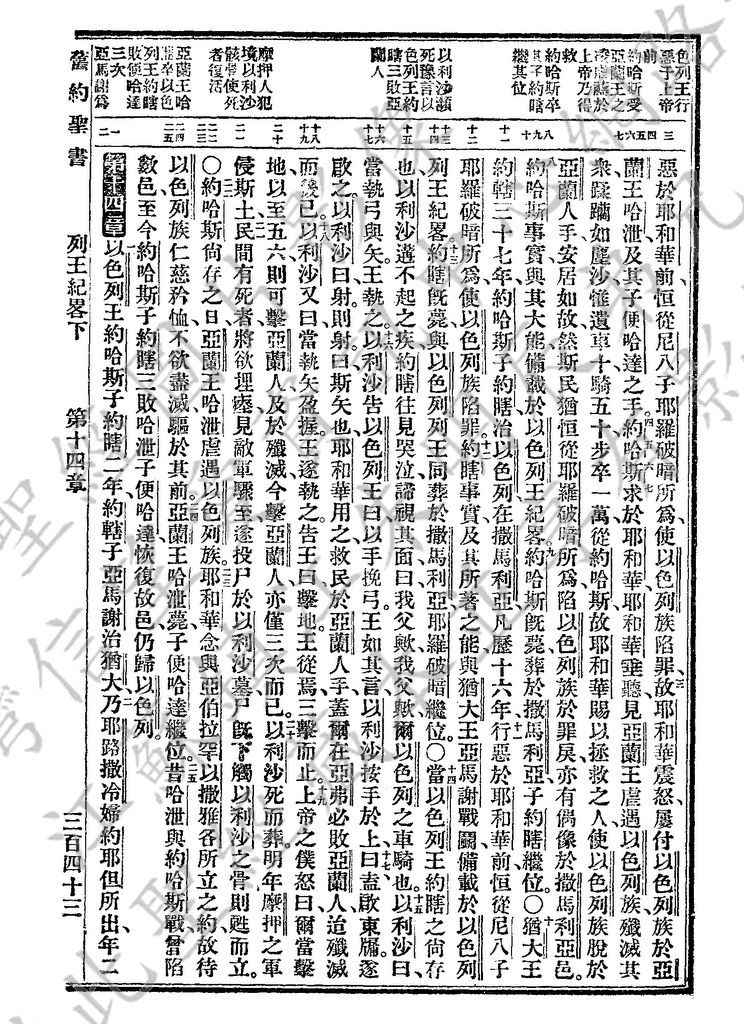 惡於耶和華前恒從尼八子耶羅破暗所爲使以色列族陷罪故耶和華震怒屢付以色列族於亞
蘭王哈泄及其子便哈達之手約哈斯求於耶和華耶和華垂聽見亞蘭王虐遇以色列族殲滅其
衆蹂躪如塵沙惟遺車十騎五十步卒一萬從約哈斯故耶和華賜以拯救之人使以色列族脫於
亞蘭人手安居如故然斯民猶恒從耶羅破暗所爲陷以色列族於罪戾亦有偶像於撒馬利亞邑
約哈斯事實與其大能備載於以色列王紀畧約哈斯旣薨葬於撒馬利亞子約瞎繼位〇猶大王
約轄三十七年約哈斯子約瞎治以色列在撒馬利亞凡歷十六年行惡於耶和華前恒從尼八子
耶羅破暗所爲使以色列族陷罪約瞎事實及其所著之能與猶大王亞馬謝戰鬬備載於以色列
列王紀畧約瞎旣薨與以色列列王同葬於撒馬利亞耶羅破暗繼位〇當以色列王約瞎之尙存
也以利沙遘不起之疾約瞎往見哭泣諦視其面曰我父歟我父歟爾以色列之車騎也以利沙曰
當執弓與矢王執之以利沙告以色列王曰以手挽弓王如其言以利沙按手於上曰盍啟東牖遂
啟之以利沙曰射則射曰斯矢也耶和華用之救民於亞蘭人手蓋爾在亞弗必敗亞蘭人迨殲滅
而後已以利沙又曰當執矢盈握王遂執之告王曰擊地王從焉三擊而止上帝之僕怒曰爾當擊
地以至五六則可擊亞蘭人及於殲滅今擊亞蘭人亦僅三次而已以利沙死而葬明年摩押之軍
侵斯土民間有死者將欲埋瘞見敵軍驟至遂投尸於以利沙墓尸旣下觸以利沙之骨則甦而立
〇約哈斯尙存之日亞蘭王哈泄虐遇以色列族耶和華念與亞伯拉罕以撒雅各所立之約故待
以色列族仁慈矜恤不欲盡滅驅於其前亞蘭王哈泄薨子便哈達繼位昔哈泄與約哈斯戰曾陷
數邑至今約哈斯子約瞎三敗哈泄子便哈達恢復故邑仍歸以色列
第十四章以色列王約哈斯子約瞎二年約轄子亞馬謝治猶大乃耶路撒冷婦約耶但所出年二
色列王行
惡于上帝
前
約哈斯受
亞蘭王之
淩虐籲於
上帝乃得
救
約哈斯卒
其子約瞎
繼其位
以利沙瀕
死豫言以
色列王約
瞎三敗亞
蘭人
摩押人犯
境以利沙
骸骨使死
者復活
亞蘭王哈
泄卒以色
列王約瞎
敗便哈達
三次
亞馬謝爲
舊約聖書
列王紀畧下
第十四章
三百四十三